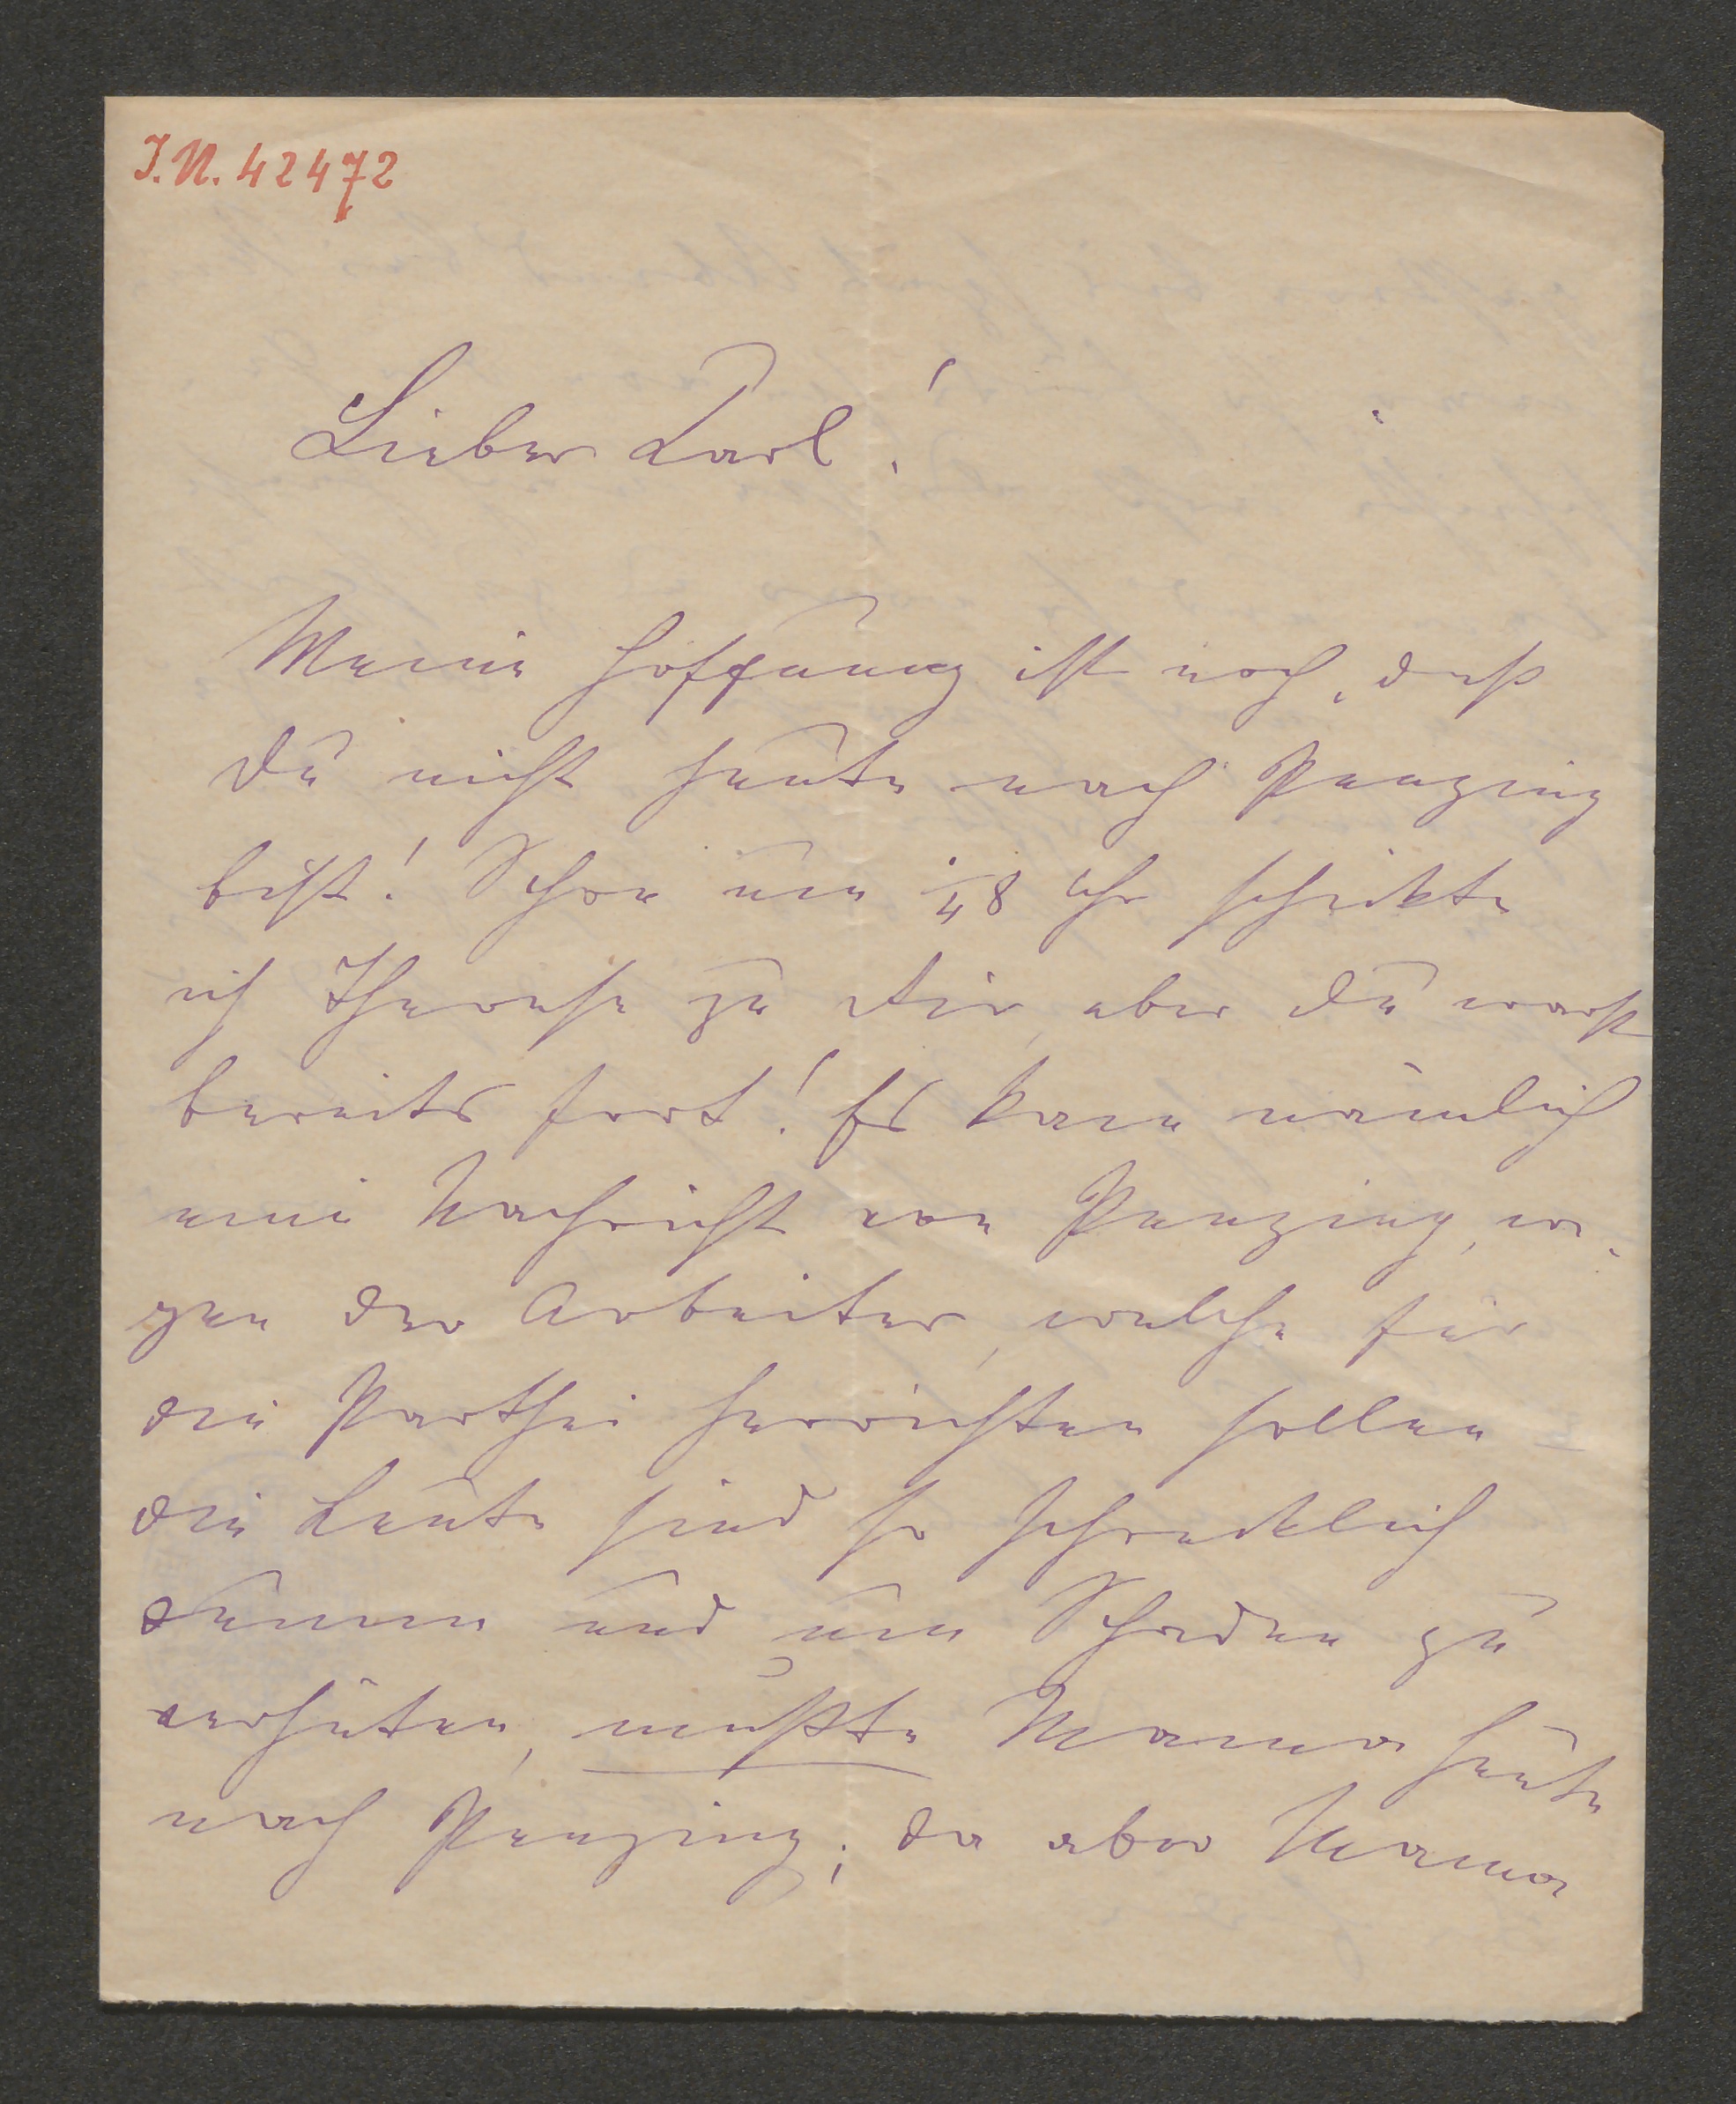 I.N. 42472
Lieber Karl!
Meine Hoffnung ist noch, daß
Du nicht heute nach Penzing
bist! Schon um 1/4 8 Uhr schickte
ich Therese zu Dir, aber Du warst
bereits fort! Es kam nämlich
eine Nachricht von Penzing, we-
gen der Arbeiter, welche für
die Parthei herrichten sollen
die Leute sind so schrecklich
dumm und um Schaden zu
verhüten, mußte Mama heute
nach Penzing; da aber Mama